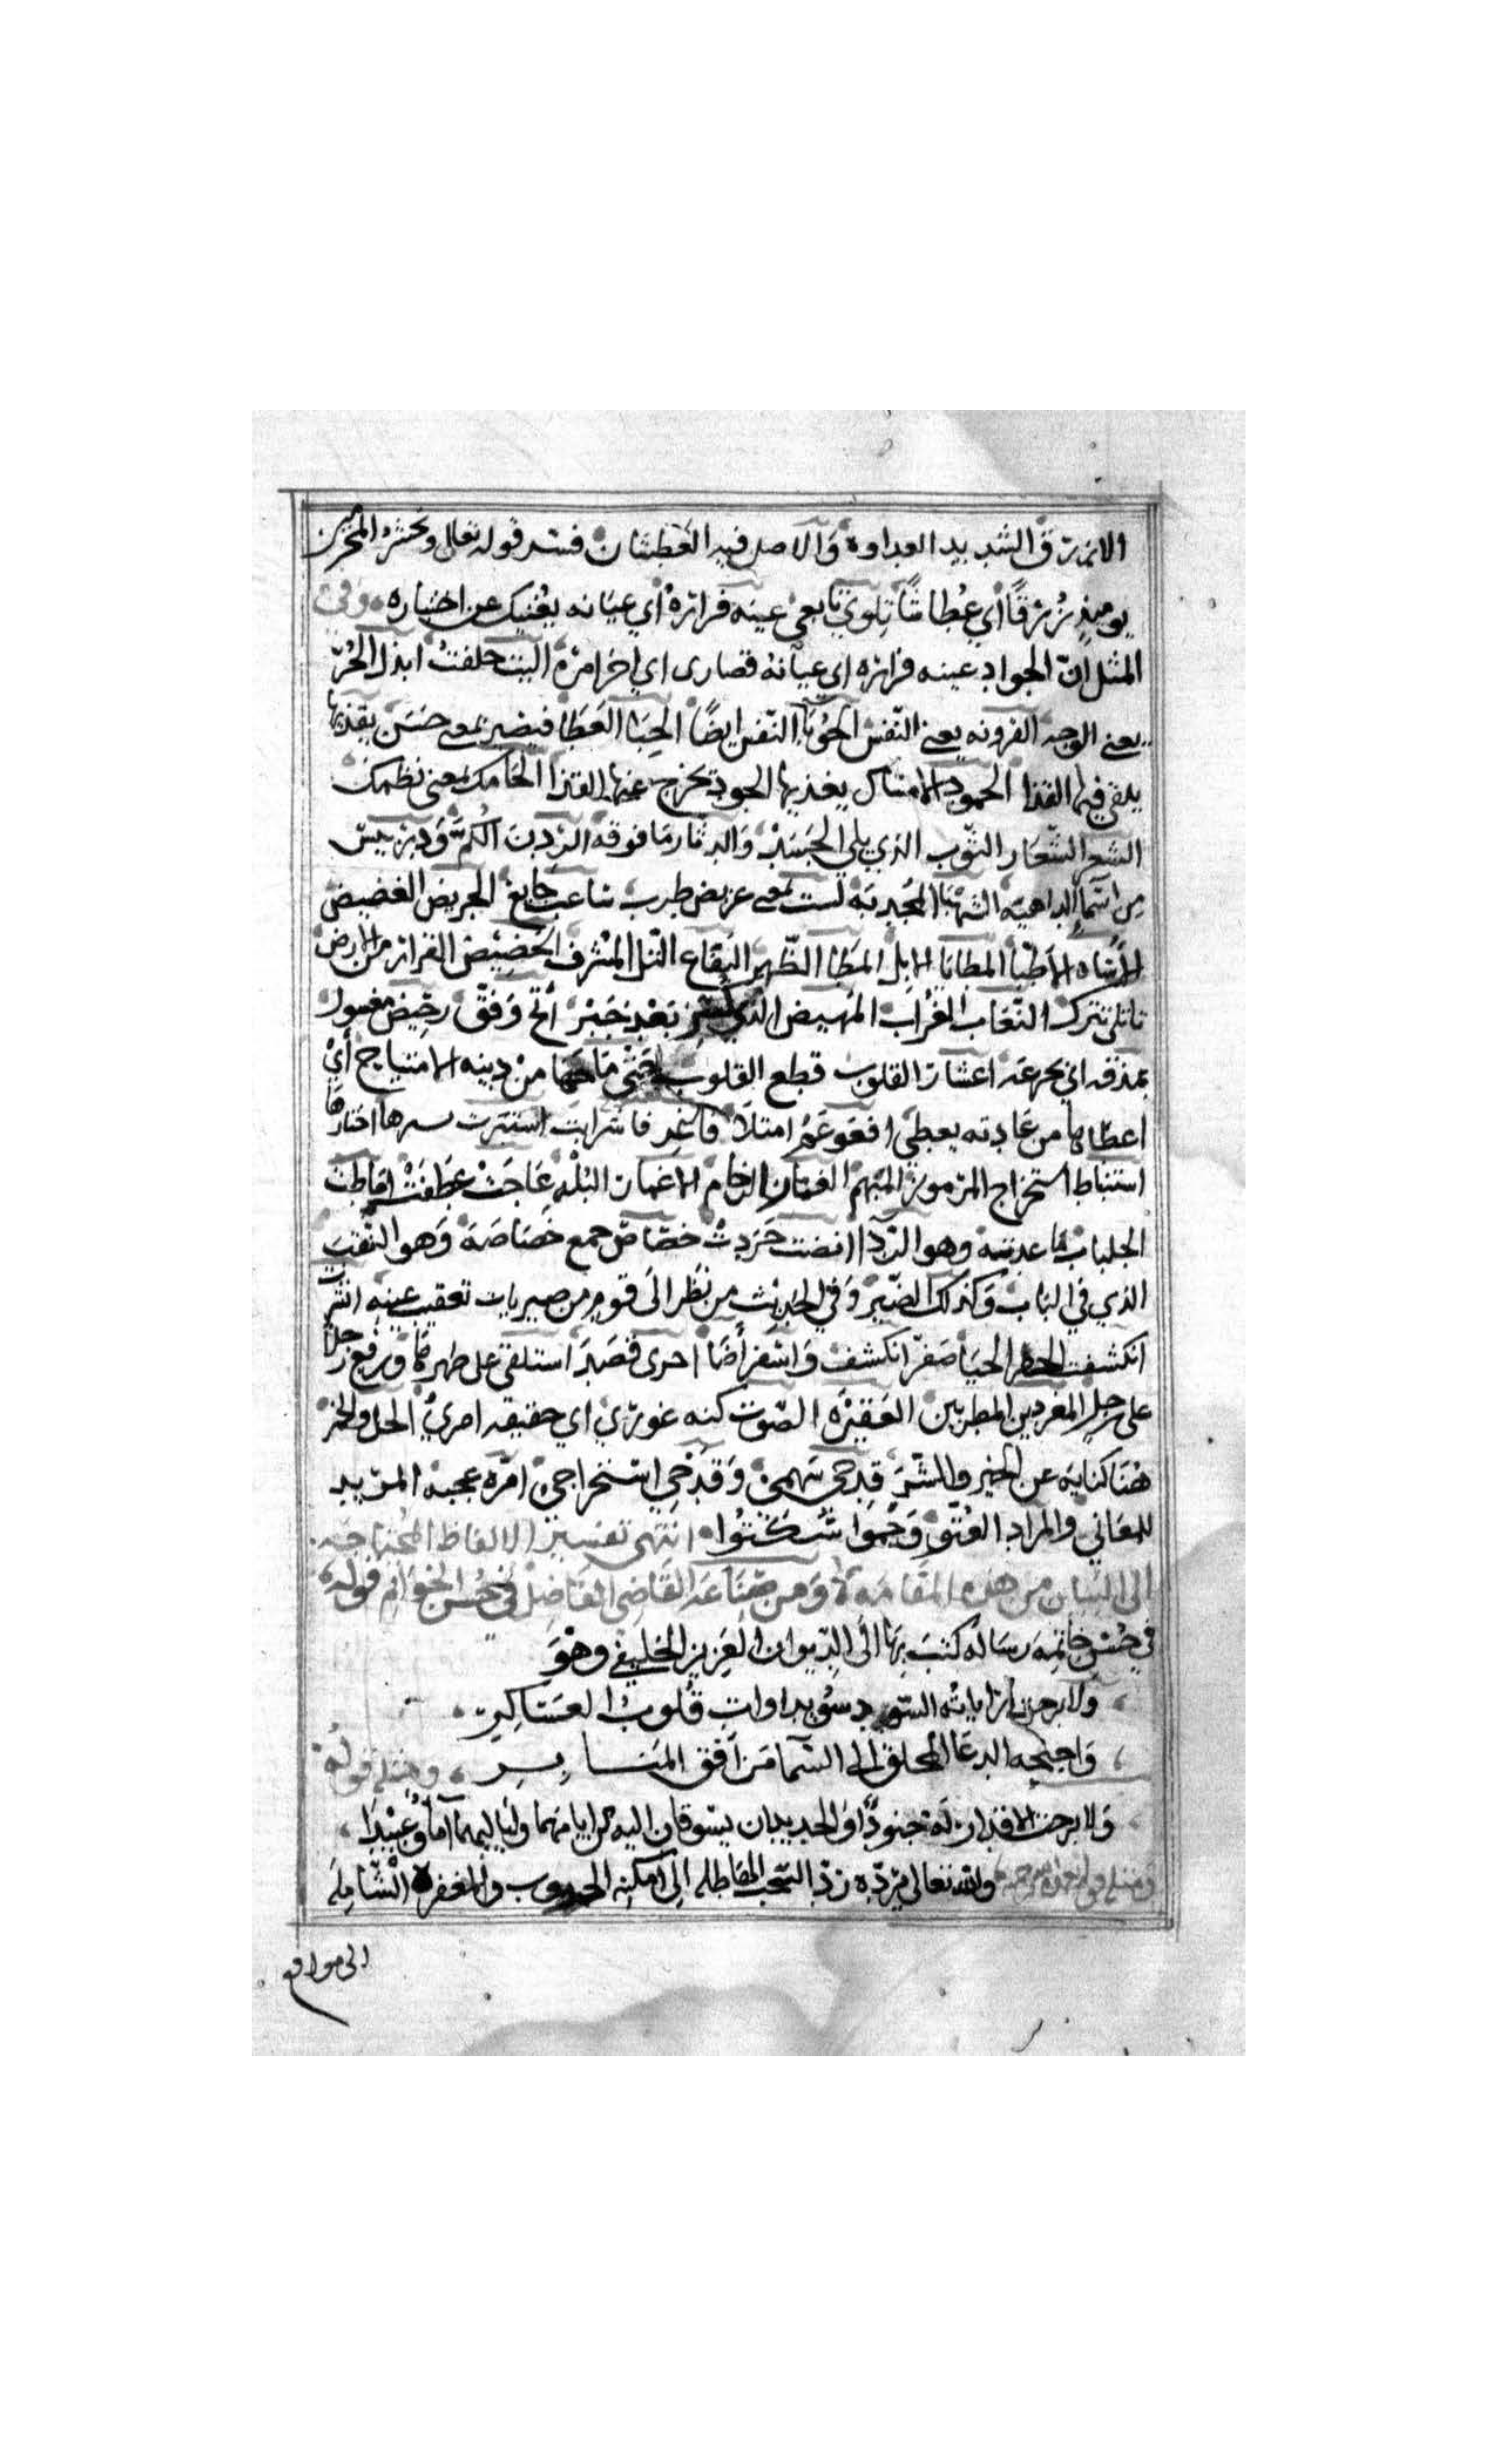 الازرق الشديد العداوة والاصل فيه العطشان فسر قوله تعالى ونحشر المجرمين
يوميذ زرقًا اي عطاشًا تلوي تابعى عينه فراره أي عيانه يغنيك عن اختباره وفي
المثل ان الجواد عينه فراره اي عيانه قصارى اي اخر امره اليت حلفت ابذل الحُرّ
يعني الوجه القرونه يعني النفس الحوبا النفس ايضًا الحبا العطا فيصير بمعى حسن يقذيها
يلقي فيها القذا الجمود الامتناكل يغذيها الجود تخرج عنها القذا الحامك بمعنى نظمك
الشعر الشعار الثوب الذي يلي الجسد والدثار ما فوقه الردن الكم ودردبيس
من اسما الداهية الشهبا المجدبة لست بمعى عريض طرب شاعب جايع الجريض الغضيض
الاشاه الاطبا المطايا الابل المطا الظهر اليفاع التل المشرف الحضيض القرار من الارض
تاتلي تترك النعاب الغراب المهيض الذي كسر بعد جبر اتح وفق رحيض مغسول
بمذقه اي بجرعه اعشار القلوب قطع القلوب حثى من دينه الامتياح أي
اعطا من عادته يعطي افعوعم امتلا فاشرابت استشرت سرها اختارها
استنباط استخراج المرموز المبهم الاغمار البله عاجت عطفت افاطت
الجلباب ما عدسه وهو الردا انضت جردت خصاص جمع خصاصه وهو النقب
الذي في الباب وكذلك الصير وفي الحديث من نظر الى قوم من صير باب تعقيب عينه انشرت
انكشفت الخفر الحيا صفر انكشف واسفر أضا احرى قصد استلقى على ظهره ورفع رجلا
على رجل المغردين المطربين العقيره الصوت كنه غوري اي حقيقه امري الخل والخمر
هنا كناية عن الخير والشر قدحي سهمي وقدحي استخراجي امره عجبه المريد
للمعاني والمراد العتو وجموا سكتوا انتهى تفسير الالفاظ المحتاجه
الى البيان من هذه المقامة ومن القاضي الفاضل في حسن الختوام قوله
في حسن خاتمة رسالة كتب بها الى الديوان العزيز الخليفي وهو
ولا برحت راياته السود سويداوات قلوب العساكر
واجنحه الدعا المحلق الى السما من افق المنابر ومثله قوله
ولا برحت الاقدار له جنودًا والجديدان يسوقان اليه من ايامهما ولياليهما آما وعبيدا
ومثله قوله والله تعالى يرده رد السحب الهاطله الى امكنه الجدوب والمغفرة الشامله
الى مواقع